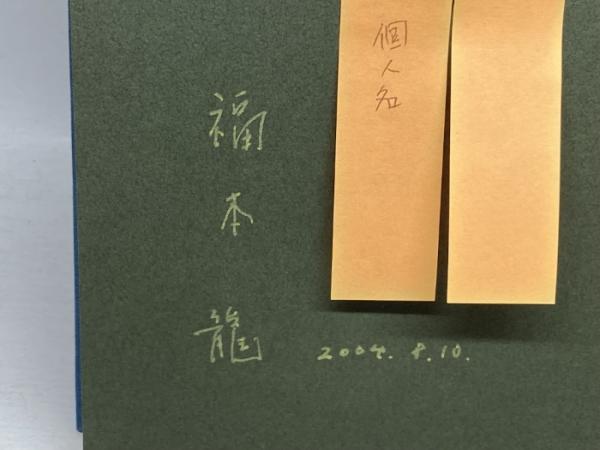 個人名
福本龍
2004.8.10.